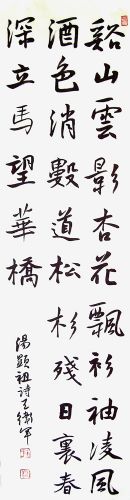 谿山雲影杏花飄衫袖凌風
酒色消數道松杉殘日裏春
深立馬望華橋
湯顯祖詩王衛軍